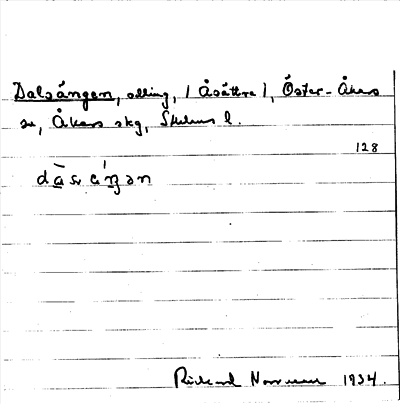 Dalsängen, odling, (Åsättra), Öster-Åkers
sn, Åkers skg, Sthlms l.
128
Rickard Norrman 1934.